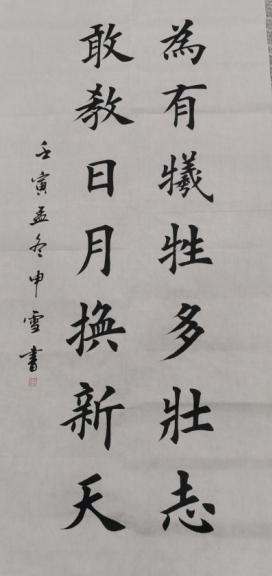 為有犧牲多壯志
敢教日月換新天
壬寅孟冬申雪書